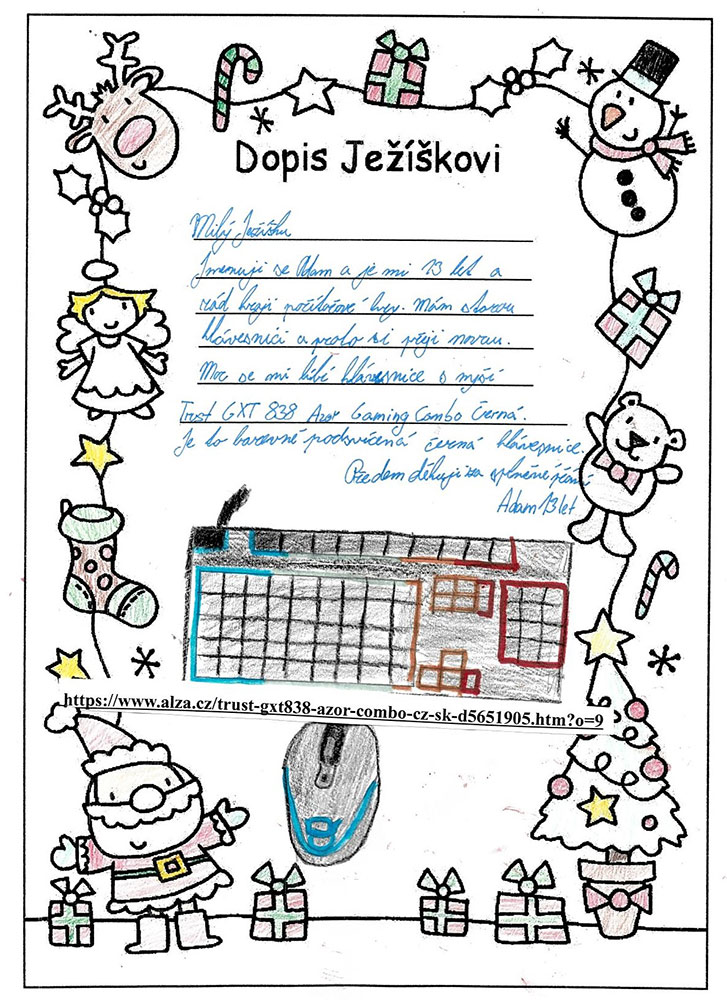 Dopis Ježíškovi
Milý Ježíšku
Jmenuji se Adam a je mi 13 let a
rád hraji počítačové hry. Mám starou
klávesnici a proto si přeji novou.
Moc se mi líbí klávesnice s myší
Trust GXT 838 Azor Gaming Combo Černá.
Je to barevně podsvícená černá klávesnice.
Předem děkuji za splněné přání
Adam 13 let
https://www.alza.cz/trust-gxt838-azor-combo-cz-sk-d5651905.htm?o=9